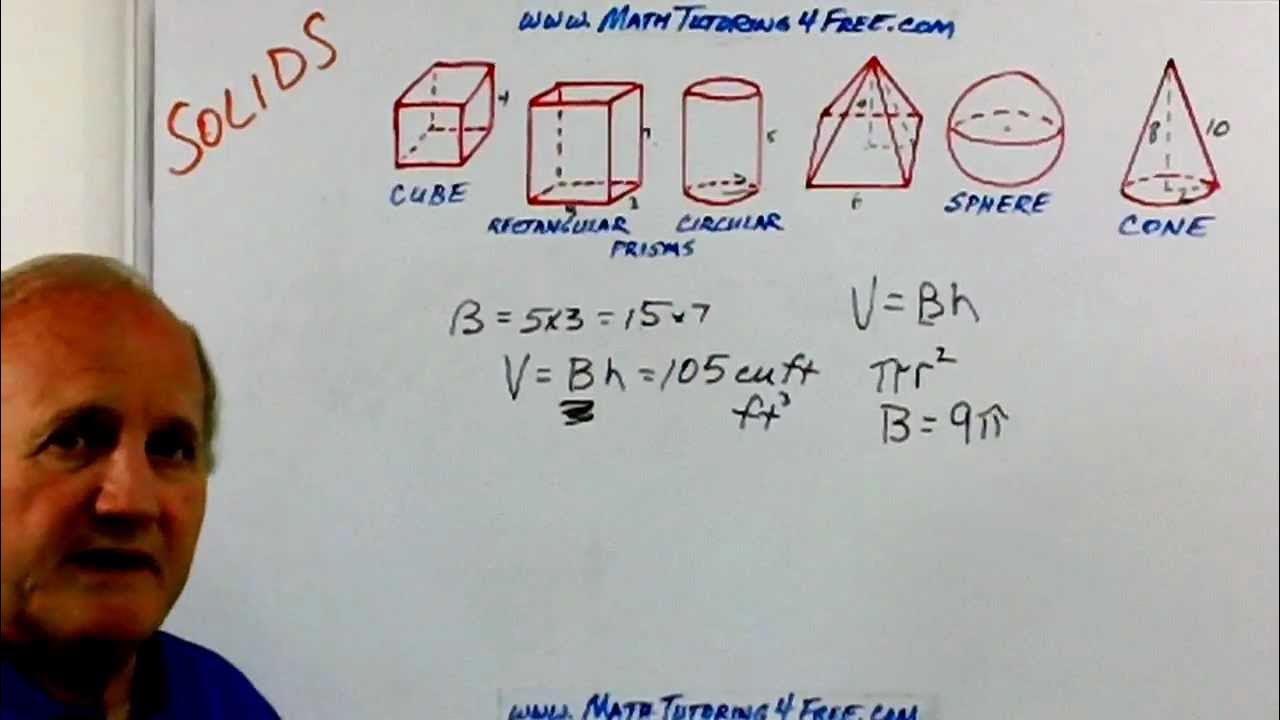 www.MathTutoring4Free.com
SOLIDS
CUBE
RECTANGULAR
CIRCULAR
PRISMS
SPHERE
CONE
4
7
5
3
6
8
10
B = 5x3 = 15x7
V = Bh = 105 cu ft
ft³
V = Bh
πr²
B = 9π
www.MathTutoring4Free.com